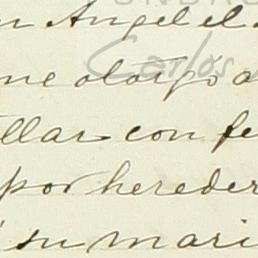 n Angel el
me otorgó a
llar con fe
por hereder
su mari